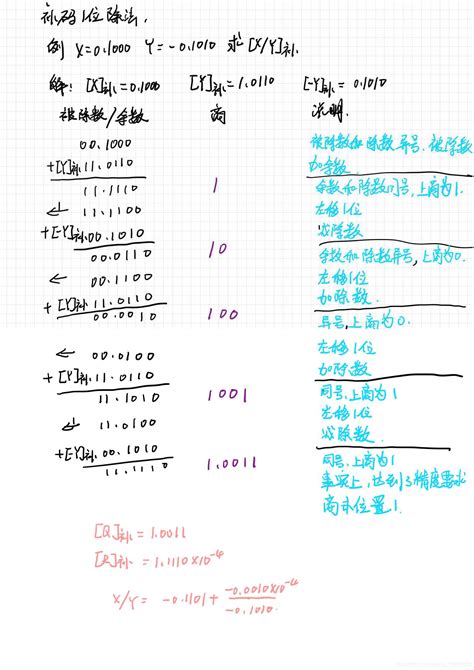 补码1位除法.
例 X=0.1000 Y=-0.1010 求[X/Y]补.
解: [X]补=0.1000 [Y]补=1.0110 [-Y]补=0.1010
被除数/余数 商 说明.
00.1000 被除数和除数异号,被除数
+[Y]补11.0110 加余数.
11.1110 1 余数和除数同号,上商为1.
← 11.1100 左移1位
+[-Y]补00.1010 减除数
00.0110 10 余数和除数异号,上商为0.
← 00.1100 左移1位
+[Y]补11.0110 加除数.
00.0010 100 异号,上商为0.
← 00.0100 左移1位
+[Y]补11.0110 加除数
11.1010 1001 同号,上商为1
← 11.0100 左移1位
+[-Y]补00.1010 减除数.
11.1110 1.0011 同号,上商为1
事实上,达到了精度要求
商末位置1.
[Q]补=1.0011
[R]补=1.1110×10⁻⁴
X/Y= -0.1101+ -0.0010×10⁻⁴
-0.1010.